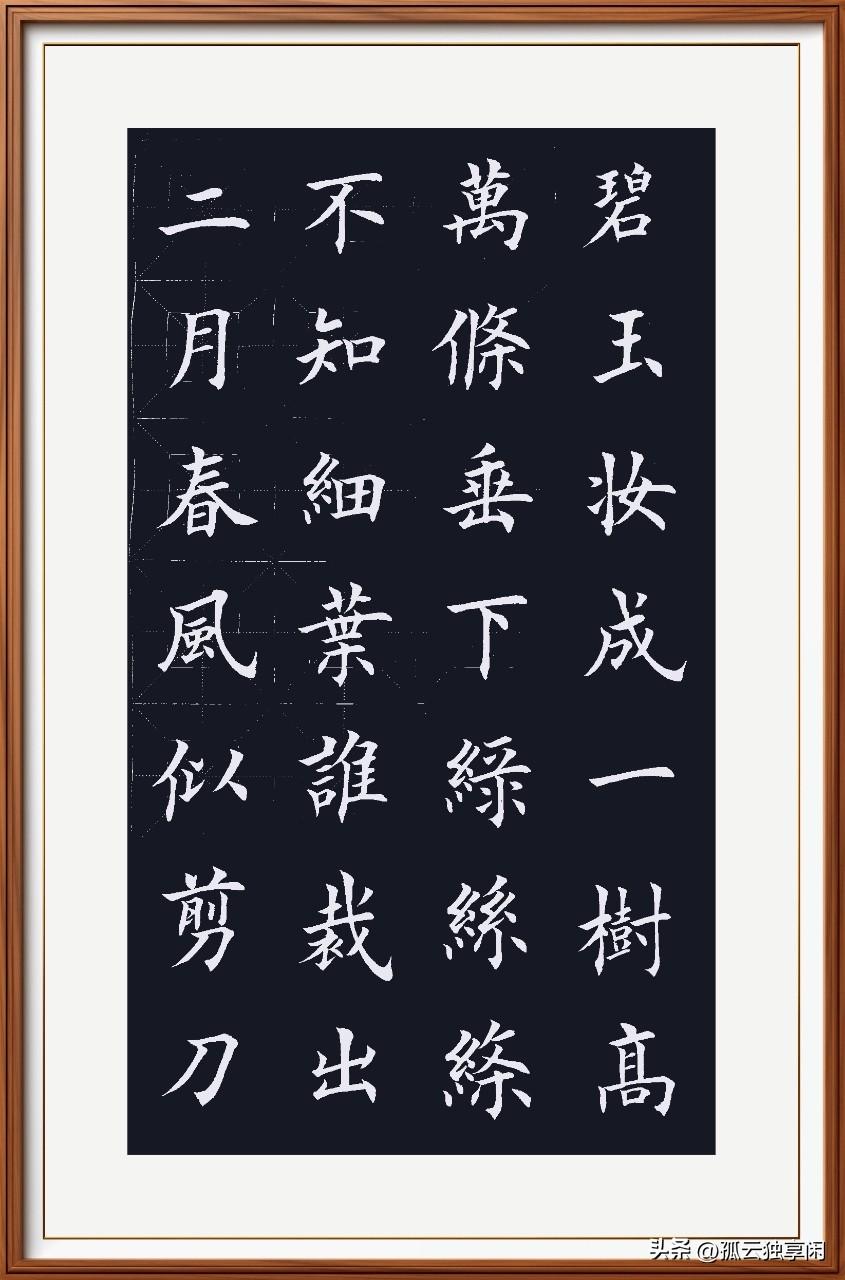 碧玉妆成一樹髙
萬條垂下綠絲絛
不知細葉誰裁出
二月春風似剪刀
头条 @孤云独享闲